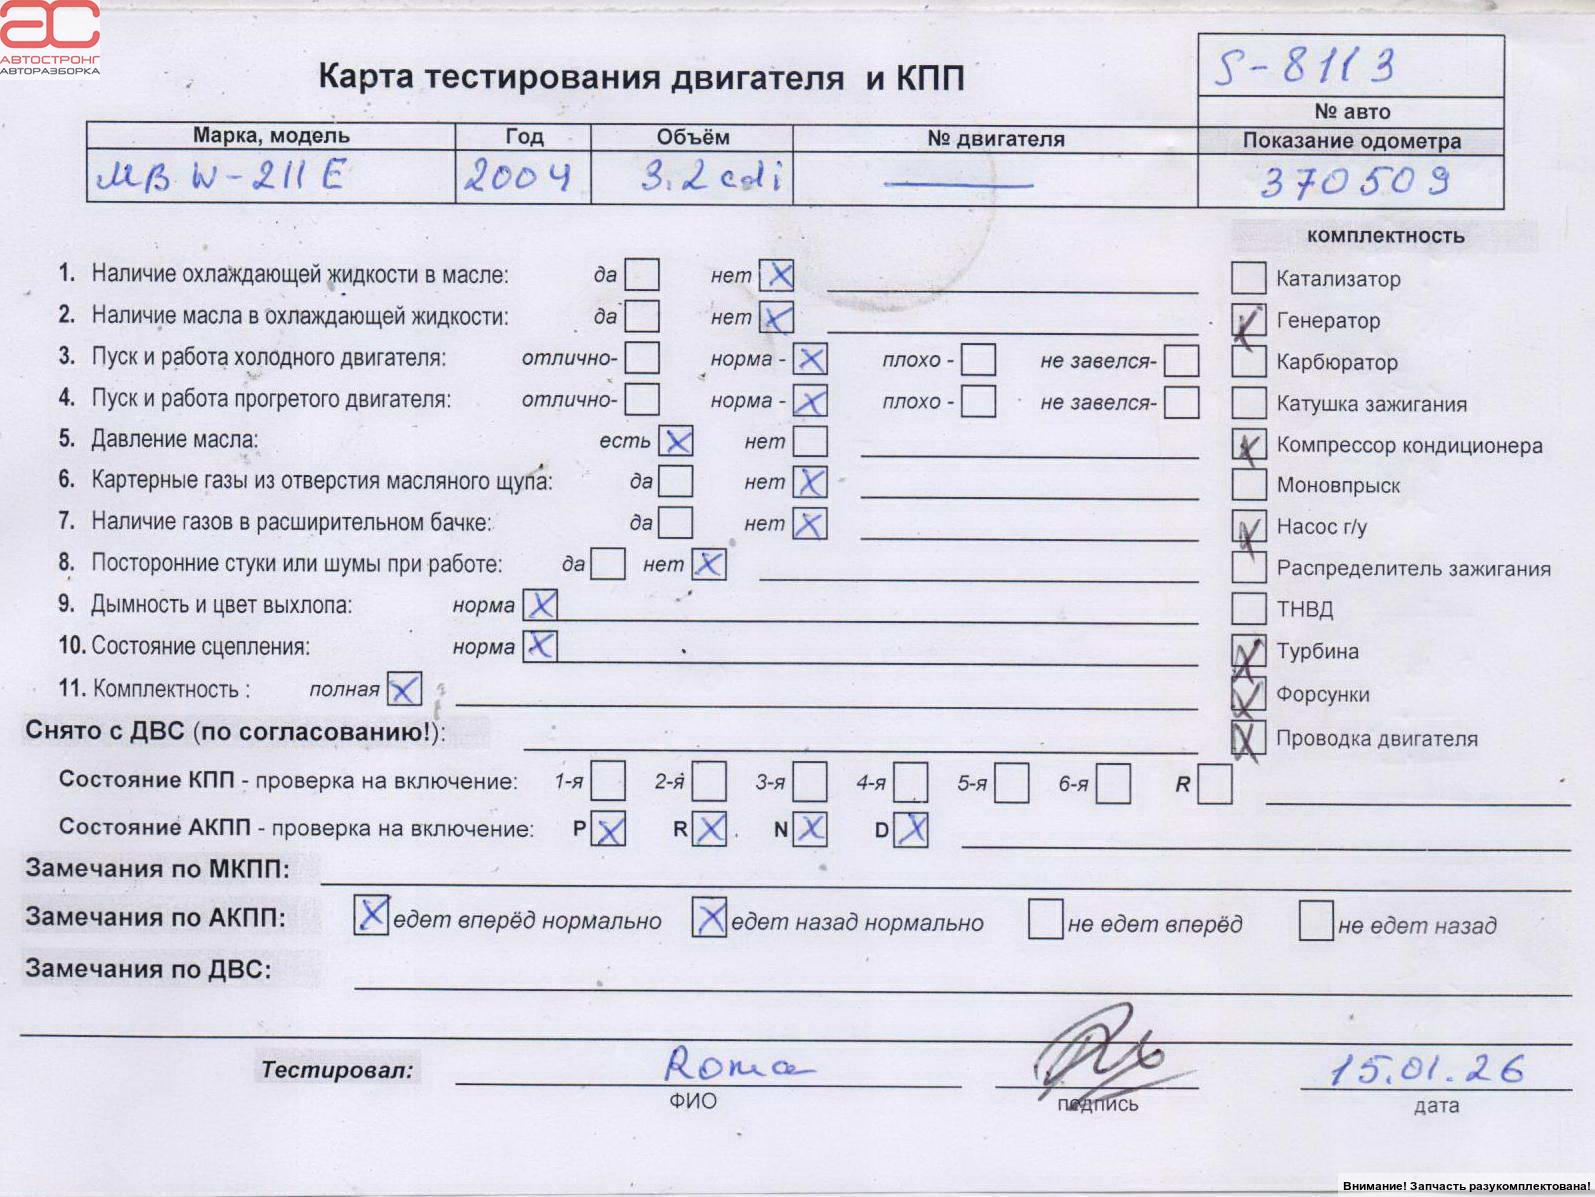 АС
АВТОСТРОНГ
АВТОРАЗБОРКА
Карта тестирования двигателя и КПП
S-8113
№ авто
Марка, модель Год Объём № двигателя Показание одометра
MB W-211 E 2004 3.2 cdi — 370509
комплектность
1. Наличие охлаждающей жидкости в масле: да нет X
Катализатор
2. Наличие масла в охлаждающей жидкости: да нет X
X Генератор
3. Пуск и работа холодного двигателя: отлично- норма - X плохо - не завелся-
Карбюратор
4. Пуск и работа прогретого двигателя: отлично- норма - X плохо - не завелся-
Катушка зажигания
5. Давление масла: есть X нет
X Компрессор кондиционера
6. Картерные газы из отверстия масляного щупа: да нет X
Моновпрыск
7. Наличие газов в расширительном бачке: да нет X
X Насос г/у
8. Посторонние стуки или шумы при работе: да нет X
Распределитель зажигания
9. Дымность и цвет выхлопа: норма X
ТНВД
10. Состояние сцепления: норма X
X Турбина
11. Комплектность : полная X
X Форсунки
Снято с ДВС (по согласованию!):
X Проводка двигателя
Состояние КПП - проверка на включение: 1-я 2-я 3-я 4-я 5-я 6-я R
Состояние АКПП - проверка на включение: P X R X N X D X
Замечания по МКПП:
Замечания по АКПП: X едет вперёд нормально X едет назад нормально не едет вперёд не едет назад
Замечания по ДВС:
Тестировал: Roma 15.01.26
ФИО подпись дата
Внимание! Запчасть разукомплектована!